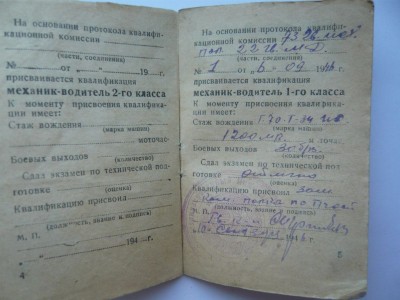 На основании протокола квалифи-
кационной комиссии
(части, соединения)
№ от 19 г.
присваивается квалификация
механик-водитель 2-го класса
К моменту присвоения квалифика-
ции имеет:
Стаж вождения
(марка машин)
моточас.
Боевых выходов
(количество)
Сдал экзамен по технической под-
готовке
(оценка)
Квалификацию присвоил
(должность, звание и подпись)
М. П.
194 г.
4
На основании протокола квалифи-
кационной комиссии
(части, соединения)
№ 1 от 6 09 г.
присваивается квалификация
механик-водитель 1-го класса
К моменту присвоения квалифика-
ции имеет:
Стаж вождения
(марка машин)
1200 моточас.
Боевых выходов
(количество)
Сдал экзамен по технической под-
готовке отлично
(оценка)
Квалификацию присвоил зам
ком. полка по
М. П. (должность, звание и подпись)
194 г.
5